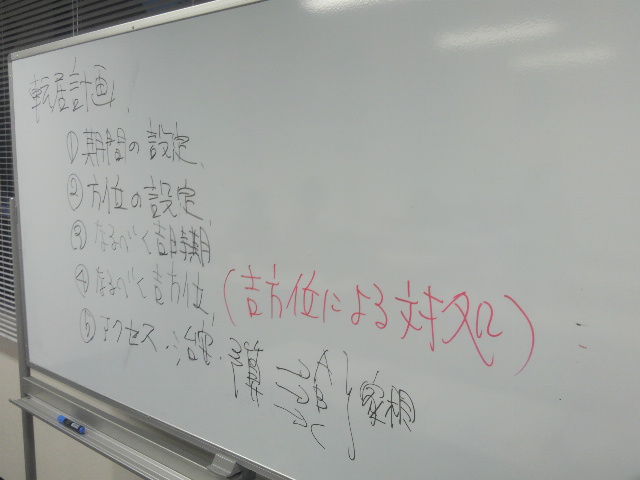 転居計画
①期間の設定
②方位の設定
③なるべく吉時期
④なるべく吉方位 (吉方位による対処)
⑤アクセス・治安 家相